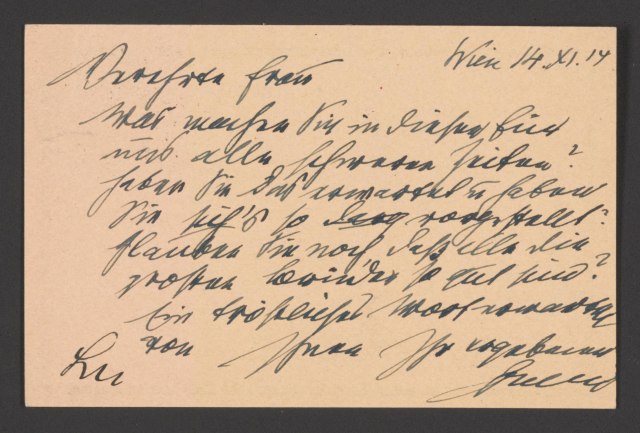 Wien 14.XI.14
Verehrte Frau
was machen Sie in diesen für
uns alle schweren Zeiten?
haben Sie das erwartet u haben
Sie sich's so arg vorgestellt?
glauben Sie noch daß alle die
großen so gut sind?
Ein tröstliches Wort erwartet
von Ihnen Ihr ergebener